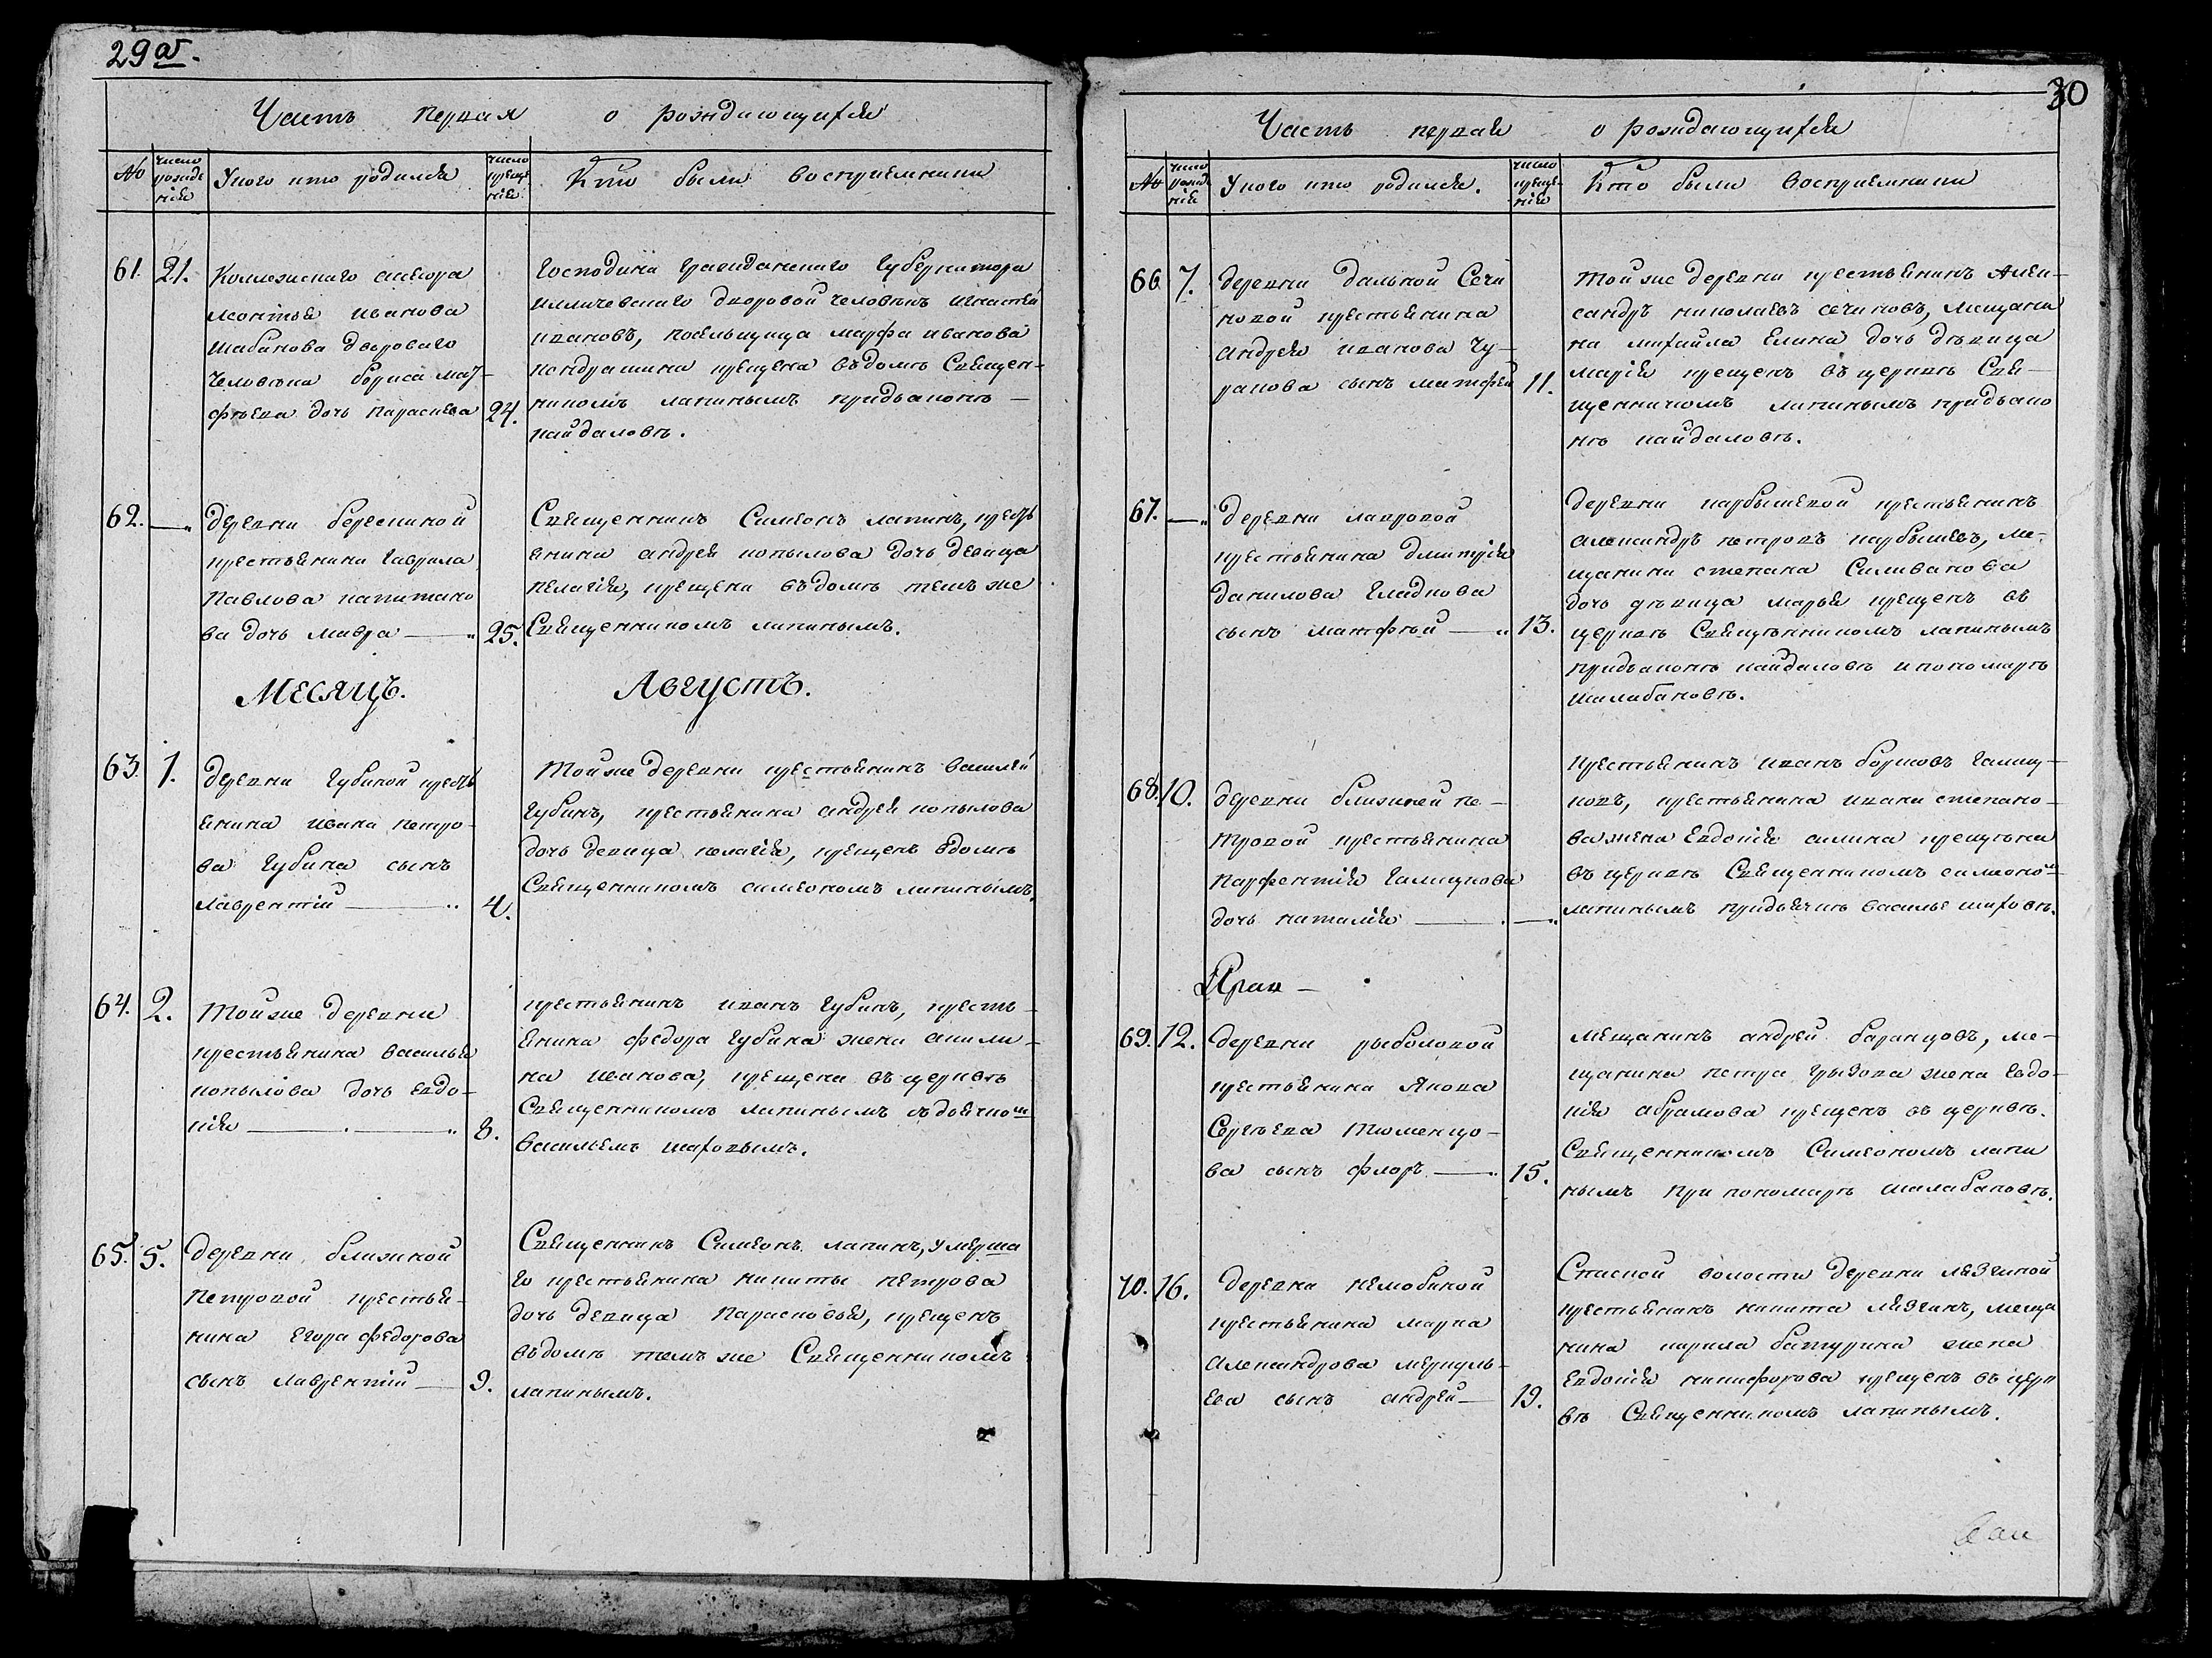 29 об.
Часть первая о рождающихся
№ число рожденія У кого кто родился число крещенія Кто были восприемники
61. 21. Коллежскаго асесора
леонтья иванова
шабанова двороваго
человека бориса мат-
фѣева дочь параскева 24.
Господина Гражданскаго Губернатора
илличевскаго дворовой человекъ игнатей
ивановъ, посельщица марфа иванова
кондрашина крещена въ домѣ Священ-
никомъ лапинымъ при дьяконѣ —
кайдаловѣ.
62. —„ деревни березкиной
крестьянина гаврила
Павлова капитано
ва дочь мавра —„ 25.
Священникъ Симеонъ лапинъ, кресть
янина андрея копылова дочь девица
пелагія, крещена въ домѣ темъ же
Священникомъ лапинымъ.
Месяцъ. Августъ.
63. 1. деревни Губиной кресть
янина ивана петро-
ва Губина сынъ
лаврентій — „ 4.
Той же деревни крестьянинъ василей
Губинъ, крестьянина андрея копылова
дочь девица пелагія, крещенъ в домѣ
Священникомъ симеономъ лапинымъ.
64. 2. Той же деревни
крестьянина василья
копылова дочь евдо-
кія — „ 8.
крестьянинъ иванъ Губинъ, кресть-
янина федора Губина жена акили-
на иванова, крещена въ церквѣ
Священникомъ лапинымъ съ дьячком
васильемъ шаховымъ.
65. 5. деревни ближной
Петровой крестья-
нина егора федорова
сынъ лаврентій — 9.
Священникъ Симеонъ лапинъ, умерша
го крестьянина никиты петрова
дочь девица Парасковья, крещенъ
въ домѣ темъ же Священникомъ
лапинымъ.
30
Часть первая о рождающихся
№ число рожденія У кого кто родился. число крещенія Кто были восприемники
66. 7. деревни дальной Сечи
новой крестьянина
андрея иванова Чу-
ракова сынъ матфей 11.
Той же деревни крестьянинъ алек-
сандръ николаевъ сечиновъ, мещани
на михайла елина дочь дѣвица
марія крещенъ въ церквѣ Свя-
щенничомъ лапинымъ при дьяко
нѣ кайдаловѣ.
67. —„ деревни лавровой
крестьянина дмитрія
данилова Гладкова
сынъ матфѣй —„ 13.
деревни карбышевой крестьянинъ
александръ петровъ карбышевъ, ме-
щанина степана Силиванова
дочь дѣвица марья крещенъ въ
церквѣ Священникомъ лапинымъ
при дьяконѣ кайдаловѣ и пономарѣ
шалабановѣ.
68. 10. деревни ближней пе-
тровой крестьянина
Парфентія Галицкова
дочь наталія — —„
Крестьянинъ иванъ борисовъ галиц-
ковъ, крестьянина ивана степано-
ва жена Евдокія силина крещена
въ церквѣ Священникомъ симеоном
лапинымъ при дьячкѣ василье шаховѣ.
69. 12. деревни рыболовой
крестьянина Якова
Сергѣева Тюменцо-
ва сынъ флоръ —„ 15.
Мещанинъ андрей баранцовъ, ме-
щанина петра грызова жена Евдо-
кія абрамова крещенъ въ церквѣ.
Священникомъ Симеономъ лапи
нымъ при пономарѣ шалабановѣ.
70. 16. деревни
крестьянина марка
александрова меркуль-
ева сынъ андрей — 19.
Спаской волости деревни лязгиной
крестьянинъ никита лязгинъ, меща
нина кирила батурина жена
Евдокія никифорова крещенъ въ церк
вѣ Священникомъ лапинымъ.